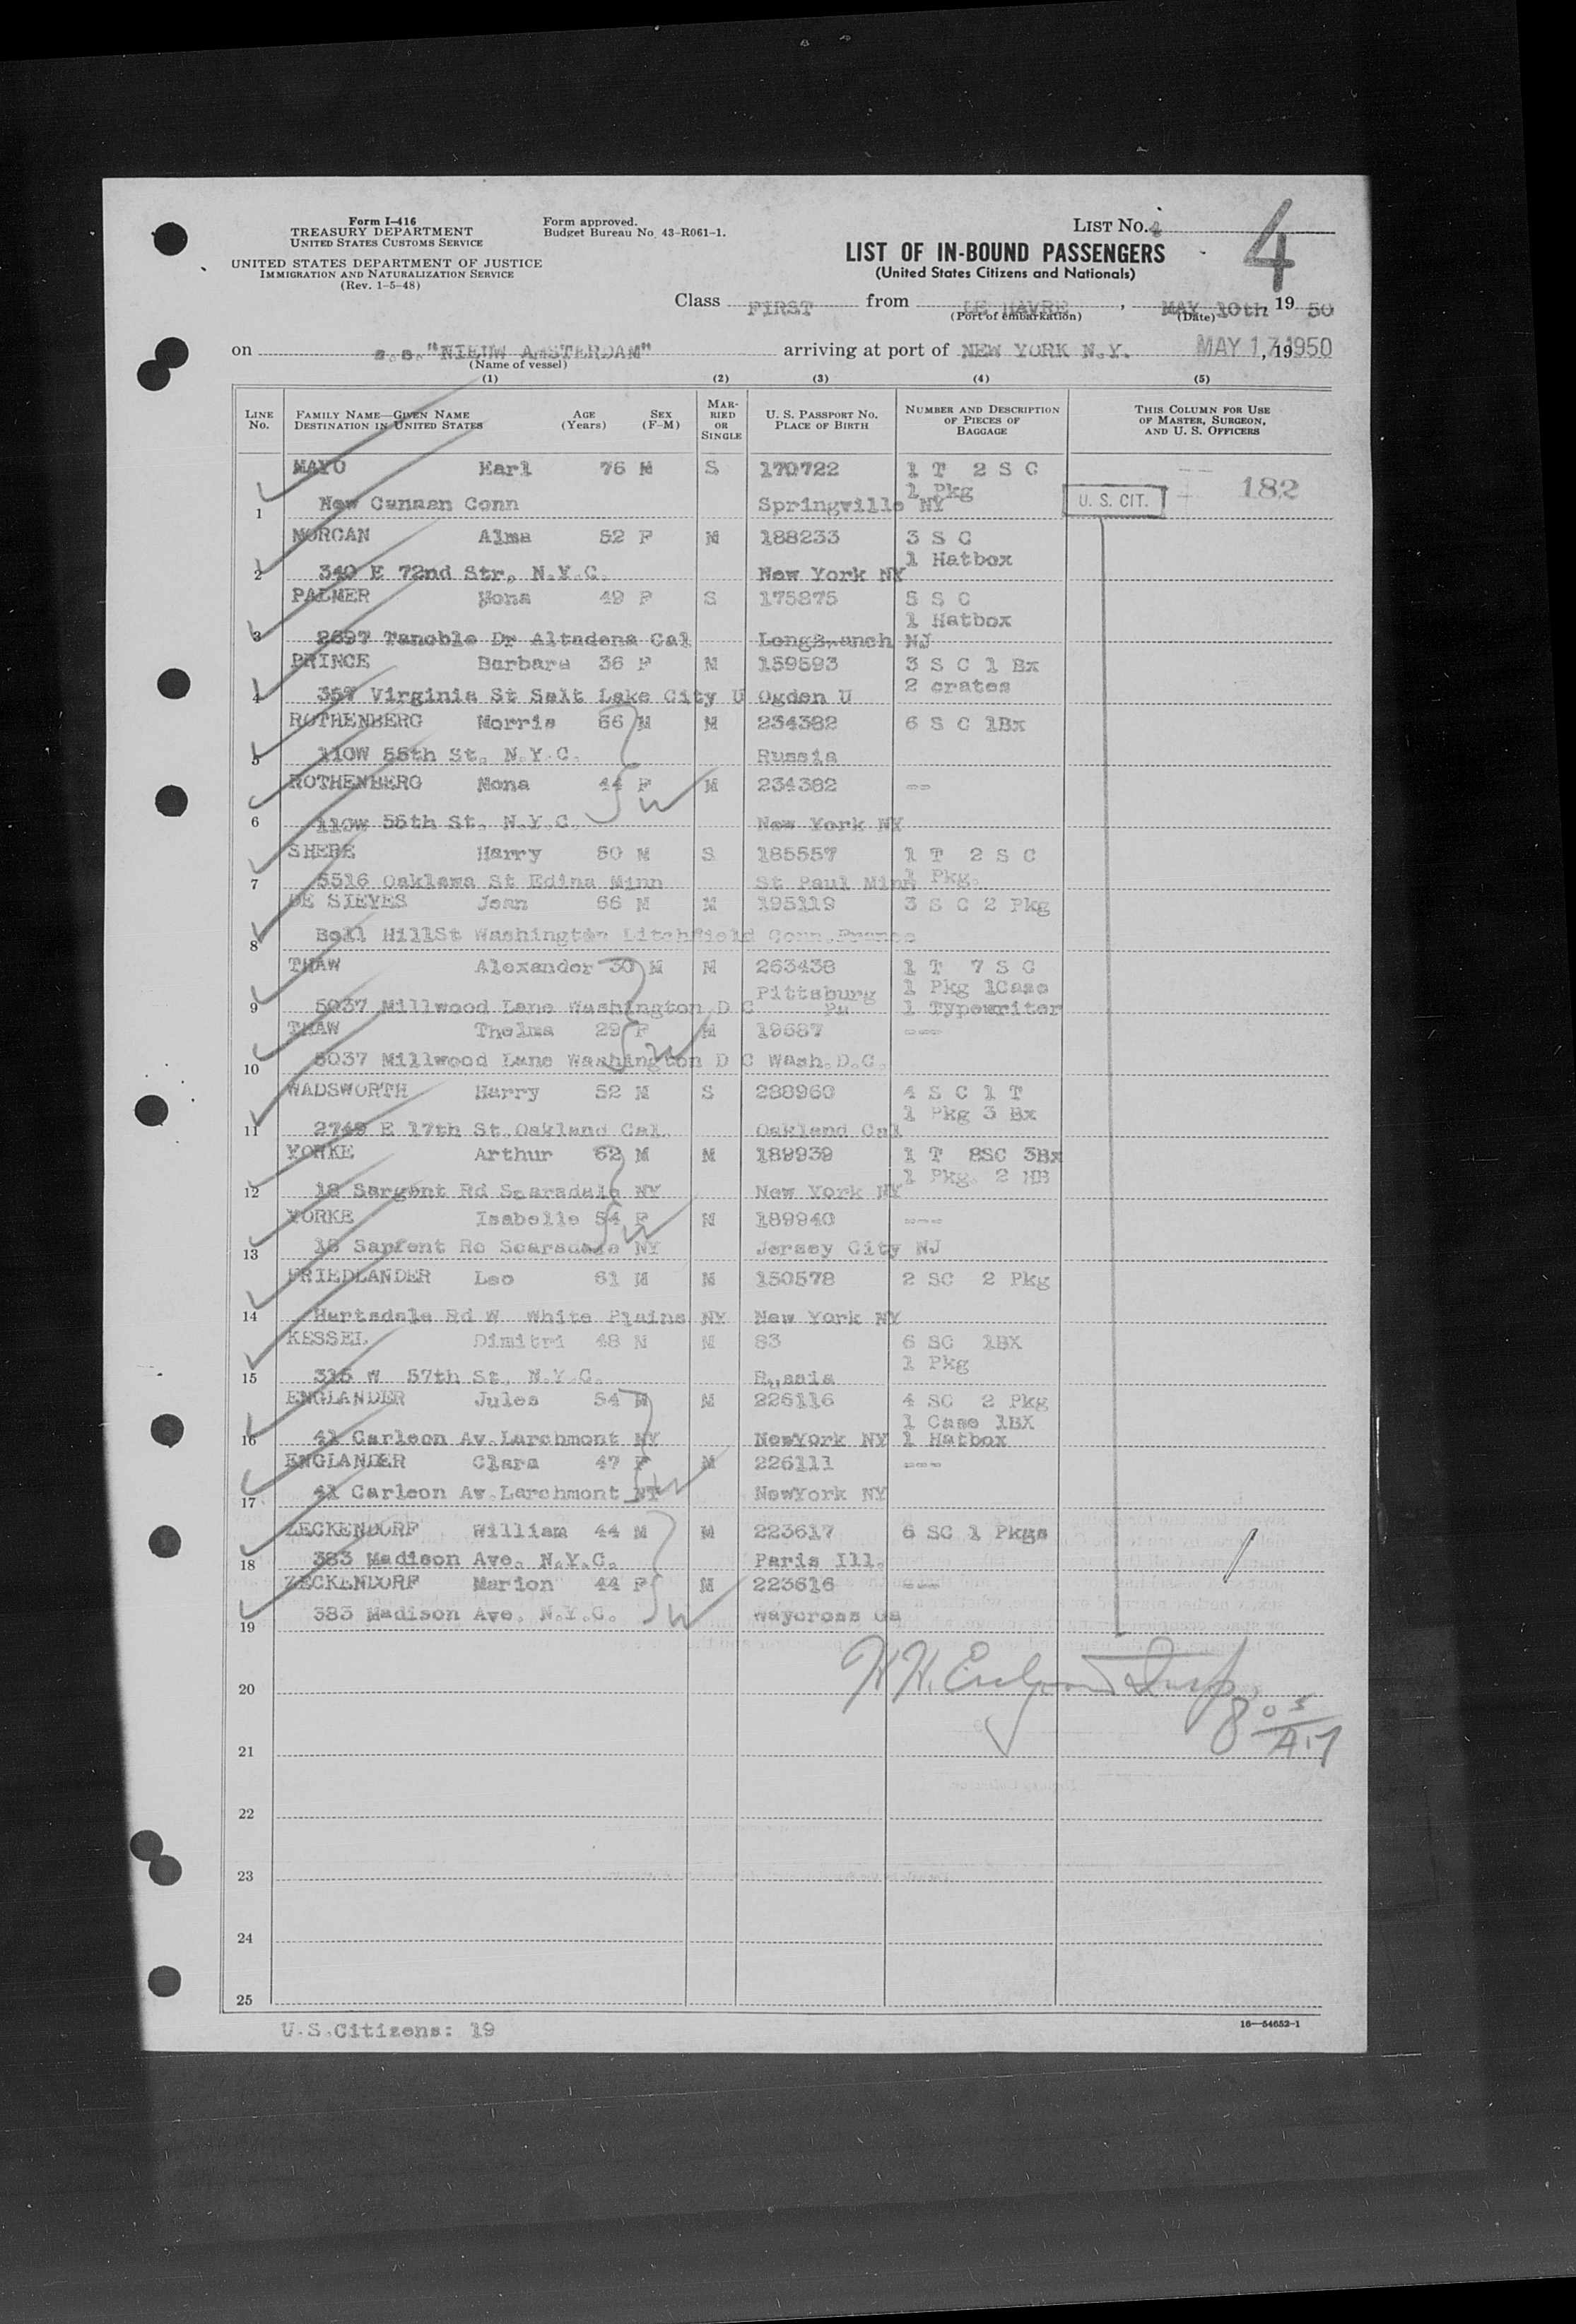 Form I-416
TREASURY DEPARTMENT
UNITED STATES CUSTOMS SERVICE
Form approved.
Budget Bureau No. 43-R061-1.
LIST NO. 4
4
UNITED STATES DEPARTMENT OF JUSTICE
IMMIGRATION AND NATURALIZATION SERVICE
(Rev. 1-5-48)
LIST OF IN-BOUND PASSENGERS
(United States Citizens and Nationals)
Class FIRST from LE HAVRE, MAY 10th, 19 50
(Port of embarkation) (Date)
on s.s."NIEUW AMSTERDAM" arriving at port of NEW YORK N.Y. MAY 17 1950, 19
(Name of vessel)
(1) (2) (3) (4) (5)
LINE NO. FAMILY NAME—GIVEN NAME DESTINATION IN UNITED STATES AGE (Years) SEX (F-M) MARRIED OR SINGLE U. S. PASSPORT NO. PLACE OF BIRTH NUMBER AND DESCRIPTION OF PIECES OF BAGGAGE THIS COLUMN FOR USE OF MASTER, SURGEON, AND U. S. OFFICERS
MAYO Earl 76 M S 170722 1 T 2 S C
1 Pkg U. S. CIT. 182
1 New Canaan Conn Springville NY
MORGAN Alma 52 F M 188233 3 S C
1 Hatbox
2 340 E 72nd Str. N.Y.C. New York NY
PALMER Mona 49 F S 175875 5 S C
1 Hatbox
3 2697 Tanoble Dr Altadena Cal LongBranch NJ
PRINCE Barbara 36 F M 159593 3 S C 1 Bx
2 crates
4 357 Virginia St Salt Lake City U Ogden U
ROTHENBERG Morris 66 M M 234382 6 S C 1Bx
5 110W 55th St. N.Y.C. Russia
ROTHENBERG Mona 44 F M 234382 --
6 110W 55th St. N.Y.C. New York NY
SHERE Harry 50 M S 185557 1 T 2 S C
1 Pkg.
7 5516 Oaklawa St Edina Minn St Paul Minn
DE SIEYES Jean 66 M M 195119 3 S C 2 Pkg
8 Bell HillSt Washington Litchfield Conn.France
THAW Alexander 30 M M 263438 1 T 7 S C
Pittsburg 1 Pkg 1Case
9 5037 Millwood Lane Washington D C Pa 1 Typewriter
THAW Thelma 29 F M 19687 ---
10 5037 Millwood Lane Washington D C Wash.D.C.
WADSWORTH Harry 52 M S 288960 4 S C 1 T
1 Pkg 3 Bx
11 2749 E 17th St.Oakland Cal. Oakland Cal
YORKE Arthur 62 M M 189939 1 T 8SC 3Bx
1 Pkg. 2 HB
12 18 Sargent Rd Scarsdale NY New York NY
YORKE Isabelle 54 F M 189940 ---
13 18 Sapfent Rc Scarsdale NY Jersey City NJ
FRIEDLANDER Leo 61 M M 150578 2 SC 2 Pkg
14 Hartsdale Rd W White Plains NY New York NY
KESSEL Dimitri 48 M M 83 6 SC 1BX
1 Pkg
15 315 W 57th St. N.Y.C. Russia
ENGLANDER Jules 54 M M 226116 4 SC 2 Pkg
1 Case 1BX
16 41 Carleon Av.Larchmont NY NewYork NY 1 Hatbox
ENGLANDER Clara 47 F M 226111 ---
17 41 Carleon Av.Larchmont NY NewYork NY
ZECKENDORF William 44 M M 223617 6 SC 1 Pkgs
18 383 Madison Ave. N.Y.C. Paris Ill.
ZECKENDORF Marion 44 F M 223616 ---
19 383 Madison Ave. N.Y.C. Waycross Ga
20
21
22
23
24
25
U.S.Citizens: 19
16—54652-1